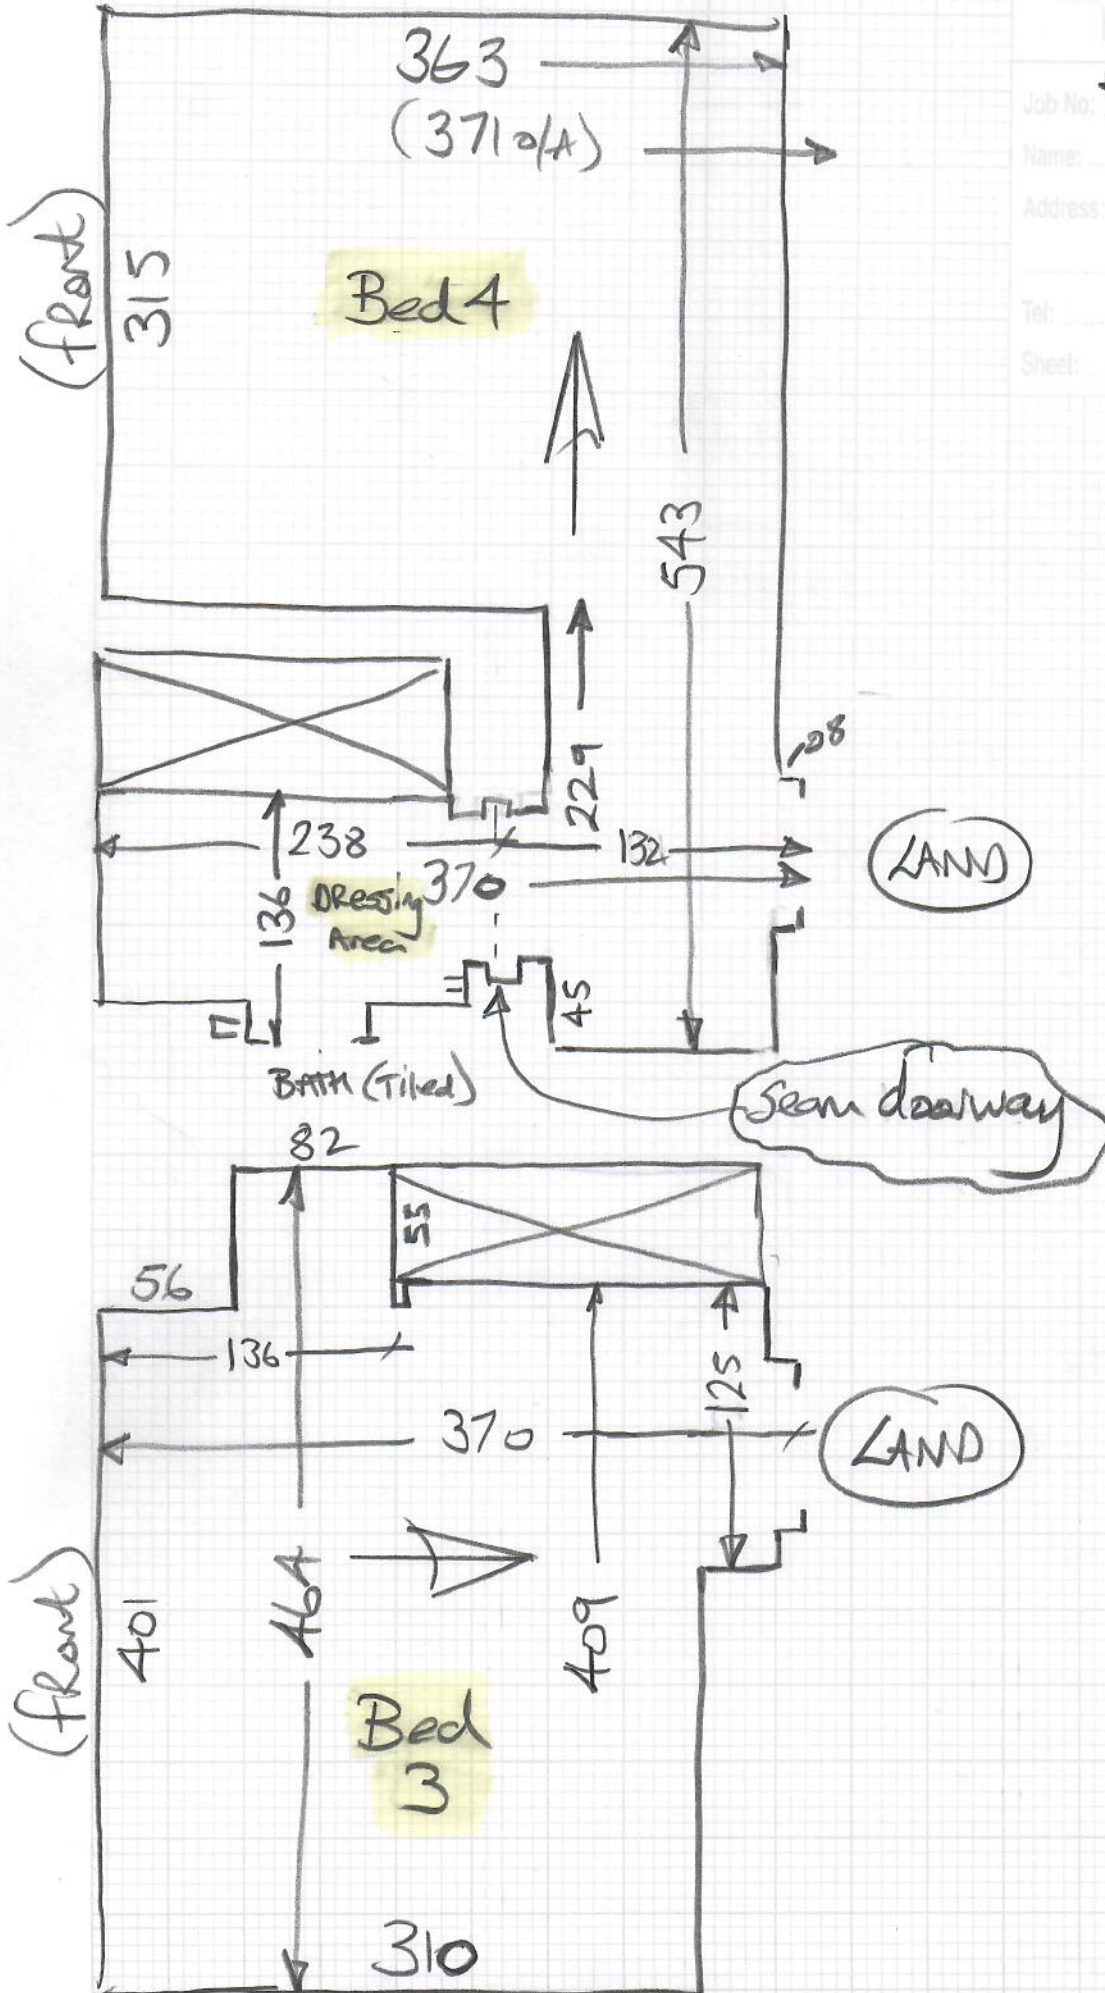 363
(371 o/A)
Job No:
Name:
Address:
Tel:
Sheet:
(fRont)
315
Bed 4
543
229
08
238
132
LAND
370
136
DRessing
Area
45
BATH (Tiled)
Seam doorway
82
55
56
136
125
370
LAND
(fRont)
401
464
409
Bed
3
310